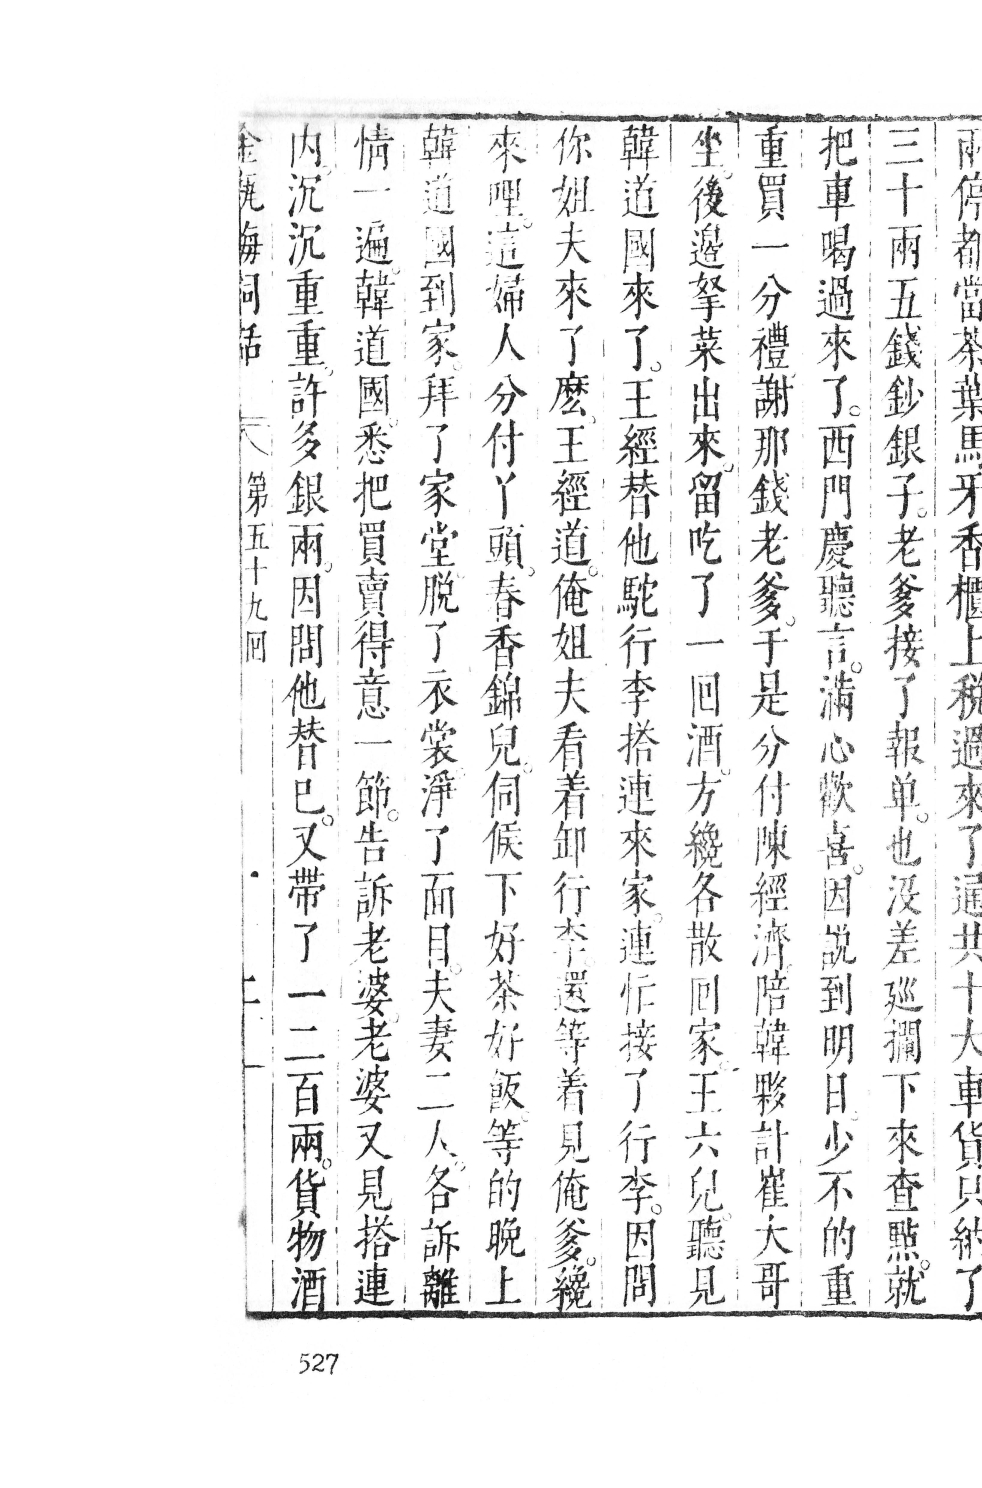 兩停都當茶葉馬牙香櫃上稅過來了通共十大車貨只納了
三十兩五錢鈔銀子。老爹接了報单。也沒差廵攔下來查點。就
把車喝過來了。西門慶聽言。滿心歡喜。因說到明日。少不的重
重買一分禮。謝那錢老爹。于是分付陳經濟。陪韓夥計崔大哥
坐。後邊拏菜出來。留吃了一回酒。方纔各散回家。王六兒。聽見
韓道國來了。王經替他駝行李搭連來家。連忙接了行李。因問
你姐夫來了麽。王經道。俺姐夫看着卸行李。還等着見俺爹。纔
來哩。這婦人分付丫頭。春香錦兒。伺候下好茶好飯。等的晚上
韓道國到家。拜了家堂。脱了衣裳。淨了面目。夫妻二人。各訴離
情一遍。韓道國。悉把買賣得意一節。告訴老婆。老婆又見搭連
内。沉沉重重。許多銀兩。因問他替已。又帶了一二百兩。貨物酒
金瓶梅詞話 第五十九回 二
527